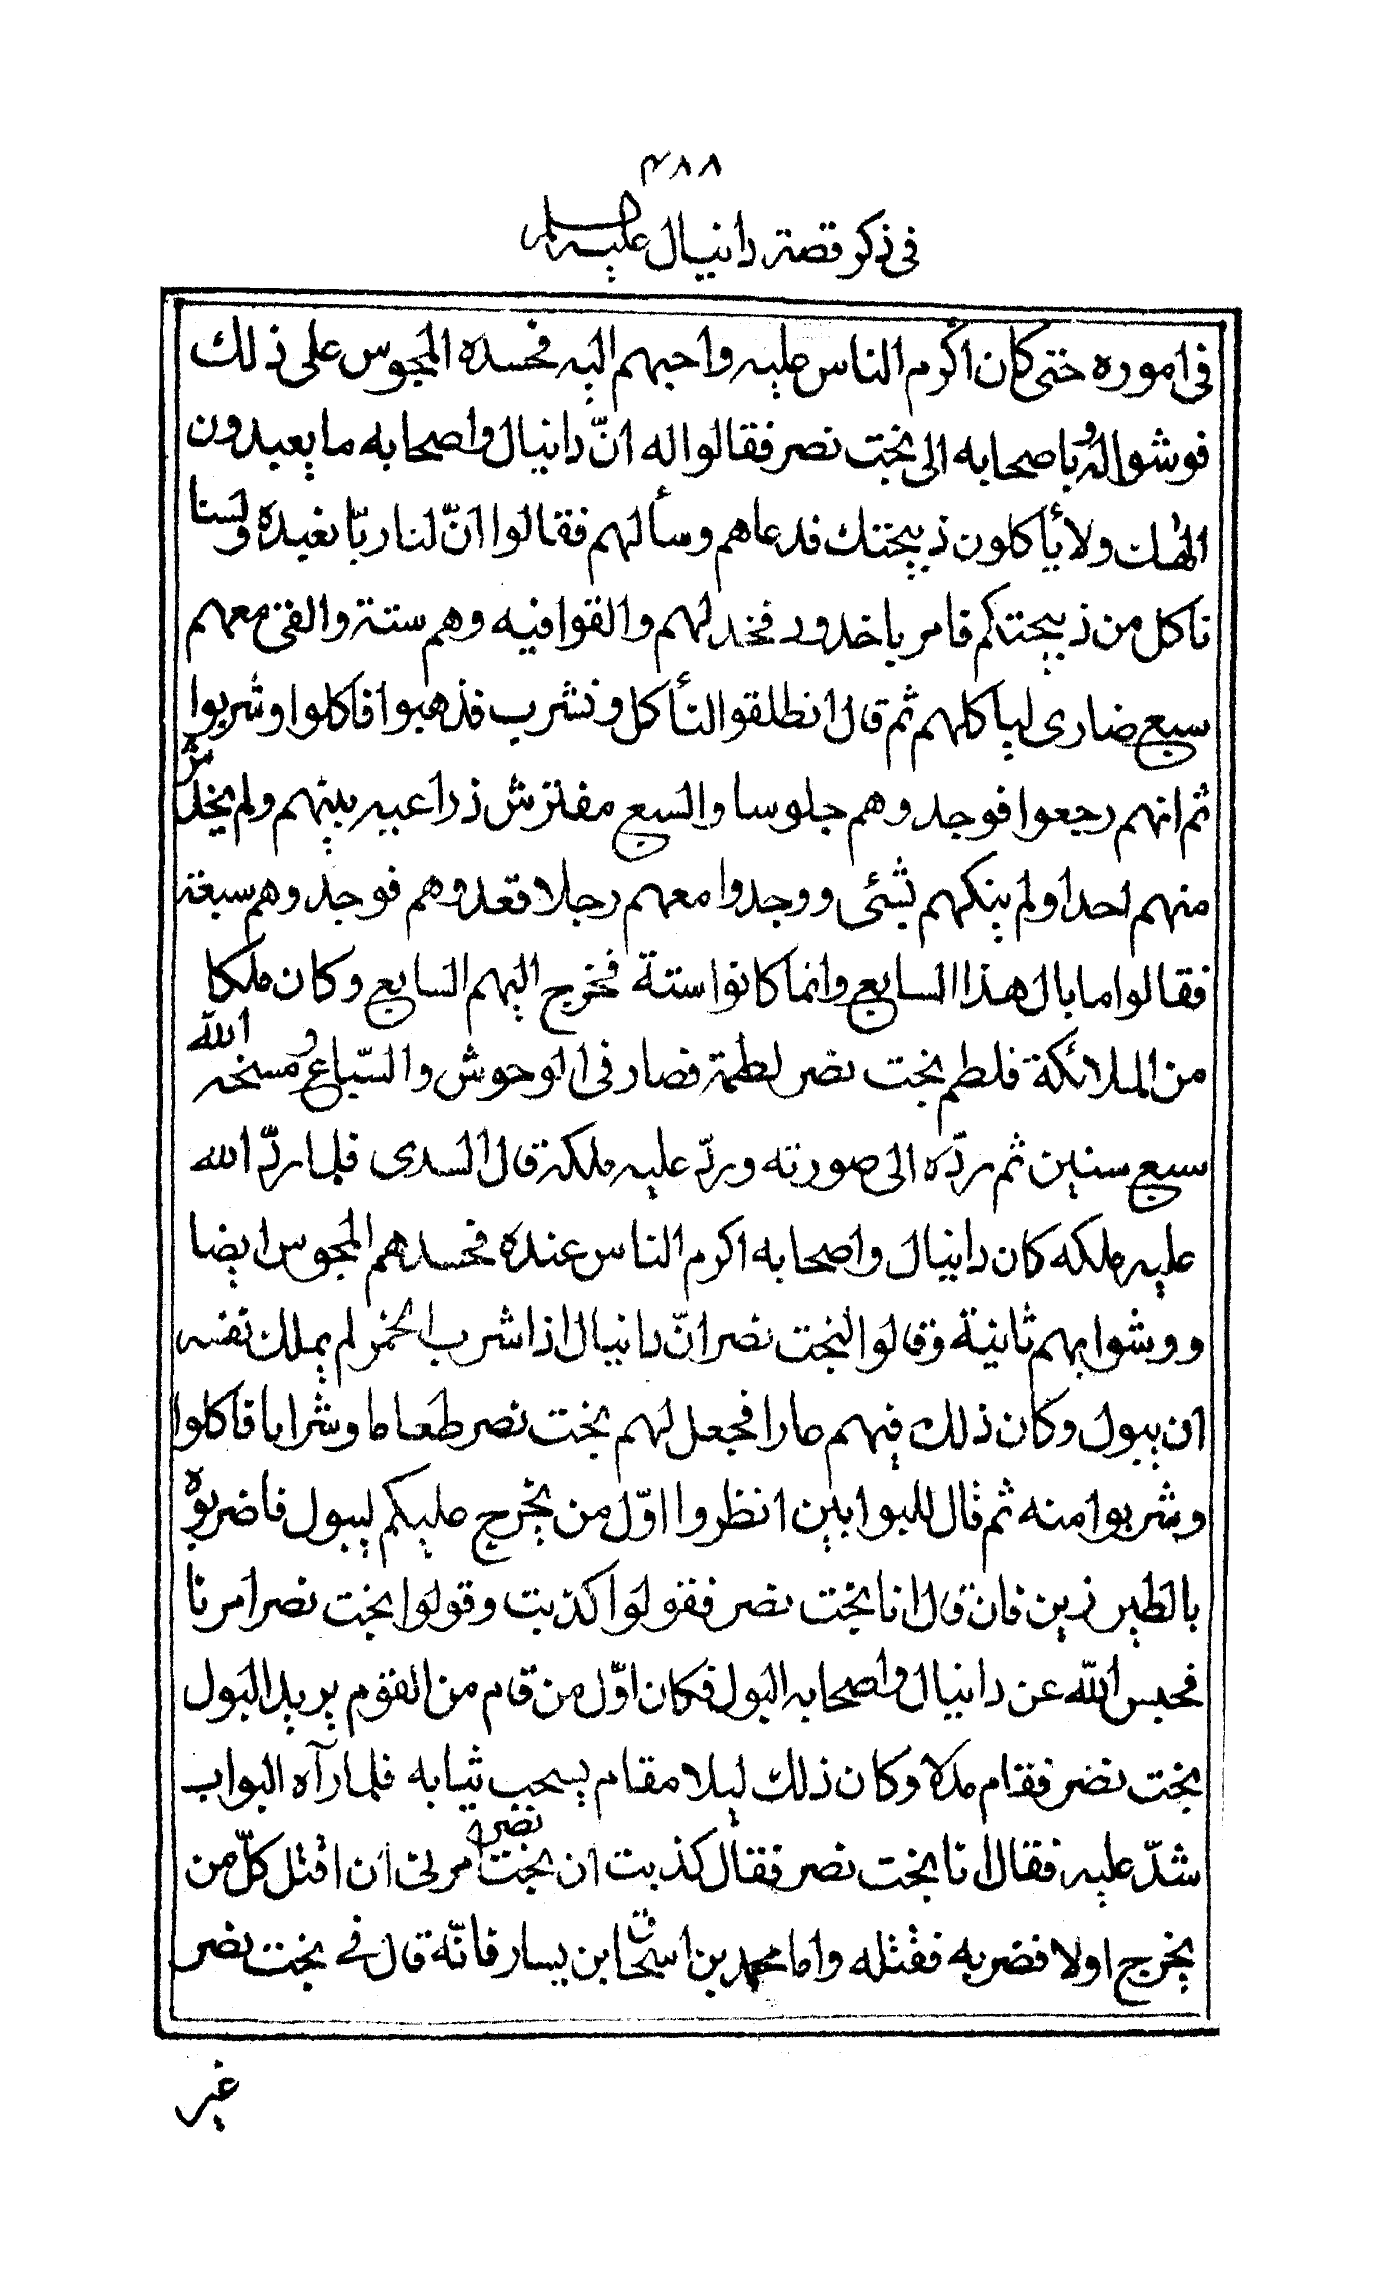 ٤٨٨
في ذكر قصة دانيال عليه السلم
في اموره حتى كان اكرم الناس عليه واحبهم اليه فحسده المجوس على ذلك
فوشوا به وباصحابه الى بخت نصر فقالوا له انّ دانيال واصحابه ما يعبدون
الٰهك ولا يأكلون ذبيحتك فدعاهم وسألهم فقالوا انّ لنا ربّا نعبده ولسنا
ناكل من ذبيحتكم فامر باخدود فخد لهم والقوا فيه وهم ستة والقى معهم
سبع ضارى لياكلهم ثم قال انطلقوا لنأكل ونشرب فذهبوا فاكلوا وشربوا
ثم انهم رجعوا فوجدوهم جلوسا والسبع مفترش ذراعيه بينهم ولم يخدش
منهم احدا ولم ينكهم بشئى ووجدوا معهم رجلا فعدوهم فوجدوهم سبعة
فقالوا ما بال هذا السابع وانما كانوا ستة فخرج اليهم السابع وكان ملكا
من الملائكة فلطم بخت نصر لطمة فصار في الوحوش والسّباع ومسخه الله
سبع سنين ثم ردّه الى صورته وردّ عليه ملكه قال السدى فلما ردّ الله
عليه ملكه كان دانيال واصحابه اكرم الناس عنده فحسدهم المجوس ايضا
ووشوا بهم ثانية وقالوا لبخت نصر انّ دانيال اذا شرب الخمر لم يملك نفسه
ان يبول وكان ذلك فيهم عارا فجعل لهم بخت نصر طعاما وشرابا فاكلوا
وشربوا منه ثم قال للبوابين انظروا اوّل من يخرج عليكم ليبول فاضربوه
بالطبرزين فان قال انا بخت نصر فقولوا كذبت وقولوا بخت نصر امرنا
فحبس الله عن دانيال واصحابه البول فكان اوّل من قام من القوم يريد البول
بخت نصر فقام مدلا وكان ذلك ليلا مقام يسحب ثيابه فلما رآه البواب
شدّ عليه فقال انا بخت نصر فقال كذبت ان بخت نصر امرنى ان اقتل كلّ من
يخرج اولا فضربه فقتله واما محمد بن اسحاق ابن يسار فانّه قال في بخت نصر
غير